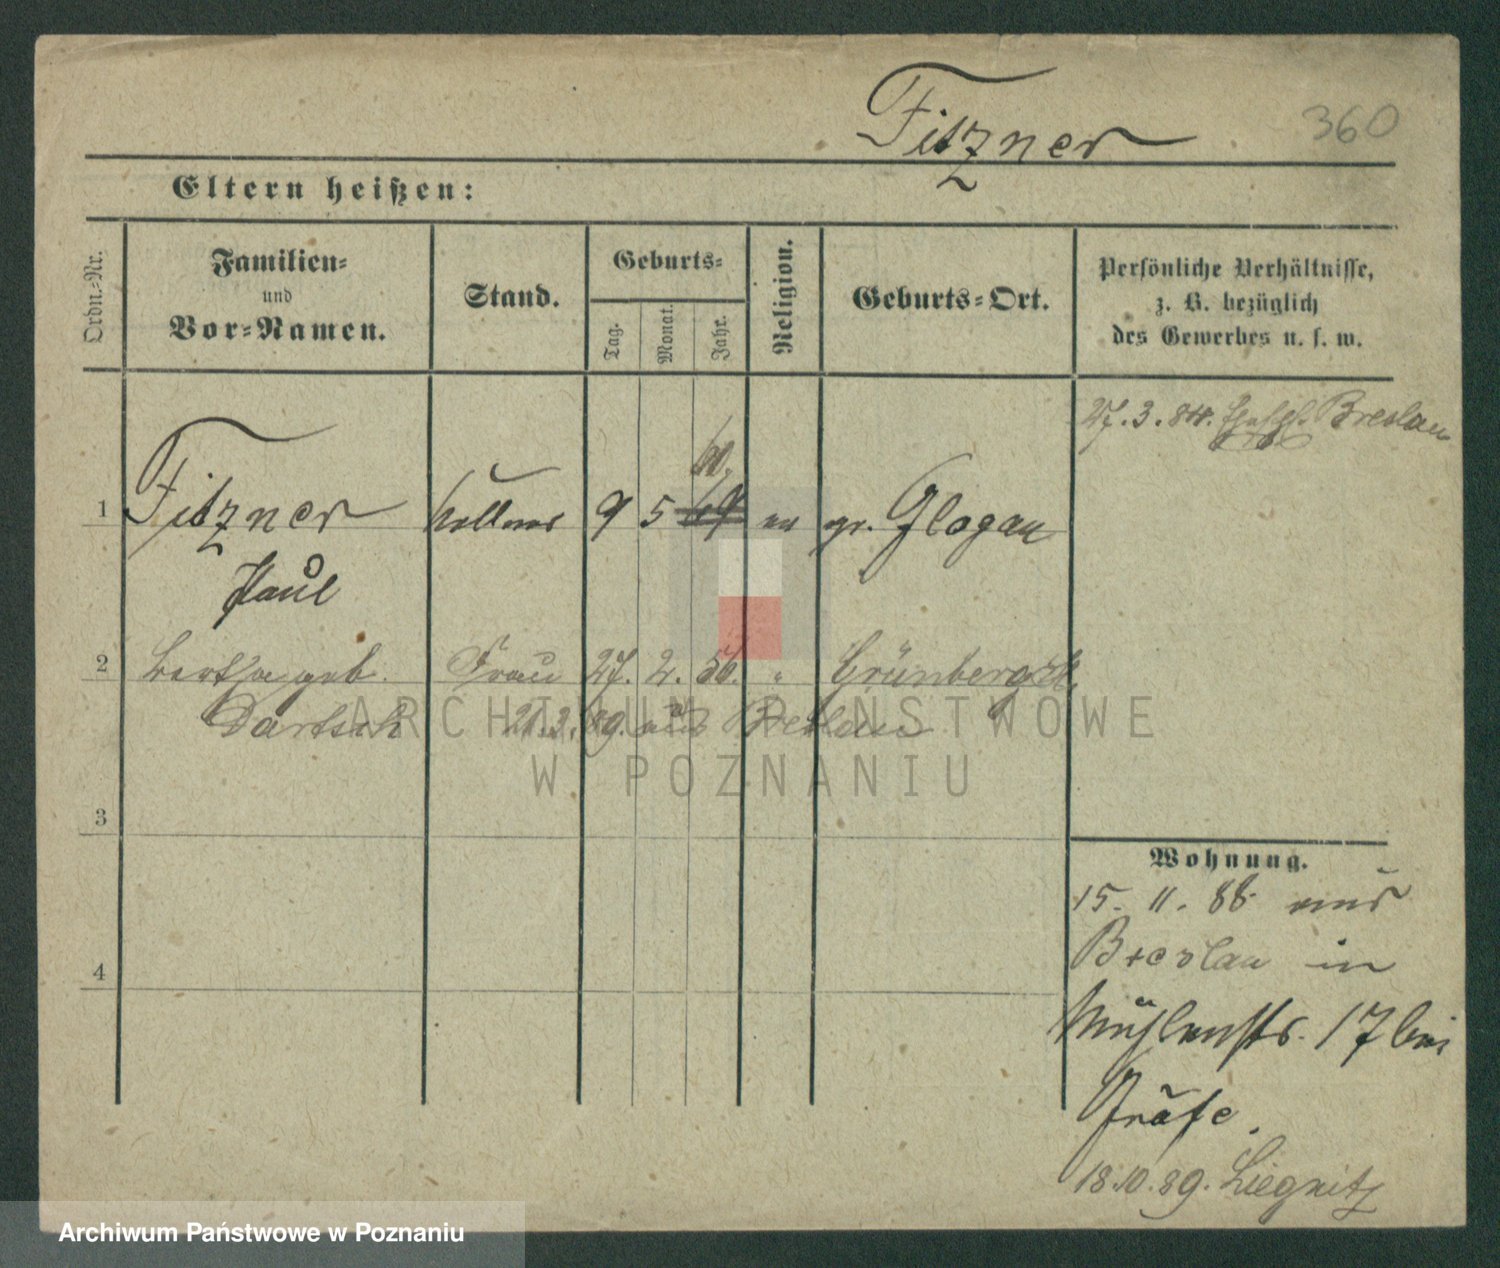 Fitzner
360
Eltern heißen:
Ordn.-Nr.
Familien-
und
Vor-Namen.
Stand.
Geburts-
Tag.
Monat.
Jahr.
Religion.
Geburts-Ort.
Persönliche Verhältnisse,
z. B. bezüglich
des Gewerbes u. s. w.
27.3.84. Breslau
60.
1 Fitzner Kellner 9 5 69 ev gr. Glogau
Paul
2 Bertha geb. Frau 27. 2. 56. " Grünberg
Bartsch 21.3.89. aus Breslau
3
4
Wohnung.
15. 11. 88 aus
Breslau in
Mühlenstr. 17 bei
Gräfe.
18.10.89. Liegnitz
ARCHIWUM PAŃSTWOWE
W POZNANIU
Archiwum Państwowe w Poznaniu